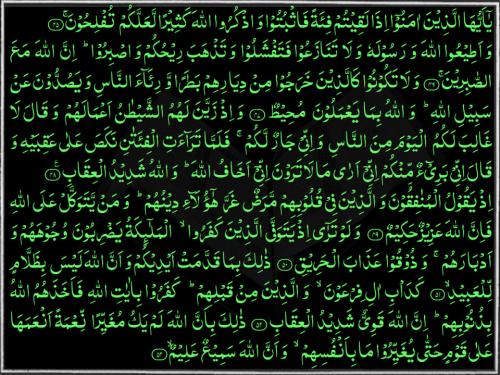 يٰۤاَيُّهَا الَّذِيْنَ اٰمَنُوْۤا اِذَا لَقِيْتُمْ فِئَةً فَاثْبُتُوْا وَاذْكُرُوا اللّٰهَ كَثِيْرًا لَّعَلَّكُمْ تُفْلِحُوْنَ ﴿۴۵﴾
وَ اَطِيْعُوا اللّٰهَ وَ رَسُوْلَهٗ وَ لَا تَنَازَعُوْا فَتَفْشَلُوْا وَ تَذْهَبَ رِيْحُكُمْ وَ اصْبِرُوْا ؕ اِنَّ اللّٰهَ مَعَ
الصّٰبِرِيْنَ ﴿۴۶﴾ وَ لَا تَكُوْنُوْا كَالَّذِيْنَ خَرَجُوْا مِنْ دِيَارِهِمْ بَطَرًا وَّ رِئَآءَ النَّاسِ وَ يَصُدُّوْنَ عَنْ
سَبِيْلِ اللّٰهِ ؕ وَ اللّٰهُ بِمَا يَعْمَلُوْنَ مُحِيْطٌ ﴿۴۷﴾ وَ اِذْ زَيَّنَ لَهُمُ الشَّيْطٰنُ اَعْمَالَهُمْ وَ قَالَ لَا
غَالِبَ لَكُمُ الْيَوْمَ مِنَ النَّاسِ وَ اِنِّيْ جَارٌ لَّكُمْ ۚ فَلَمَّا تَرَآءَتِ الْفِئَتٰنِ نَكَصَ عَلٰى عَقِبَيْهِ وَ
قَالَ اِنِّيْ بَرِيْٓءٌ مِّنْكُمْ اِنِّيْۤ اَرٰى مَا لَا تَرَوْنَ اِنِّيْۤ اَخَافُ اللّٰهَ ؕ وَ اللّٰهُ شَدِيْدُ الْعِقَابِ ﴿۴۸﴾
اِذْ يَقُوْلُ الْمُنٰفِقُوْنَ وَ الَّذِيْنَ فِيْ قُلُوْبِهِمْ مَّرَضٌ غَرَّ هٰۤؤُلَآءِ دِيْنُهُمْ ؕ وَ مَنْ يَّتَوَكَّلْ عَلَى اللّٰهِ
فَاِنَّ اللّٰهَ عَزِيْزٌ حَكِيْمٌ ﴿۴۹﴾ وَ لَوْ تَرٰۤى اِذْ يَتَوَفَّى الَّذِيْنَ كَفَرُوا ۙ الْمَلٰٓئِكَةُ يَضْرِبُوْنَ وُجُوْهَهُمْ وَ
اَدْبَارَهُمْ ۚ وَ ذُوْقُوْا عَذَابَ الْحَرِيْقِ ﴿۵۰﴾ ذٰلِكَ بِمَا قَدَّمَتْ اَيْدِيْكُمْ وَ اَنَّ اللّٰهَ لَيْسَ بِظَلَّامٍ
لِّلْعَبِيْدِ ﴿۵۱﴾ كَدَاْبِ اٰلِ فِرْعَوْنَ ۙ وَ الَّذِيْنَ مِنْ قَبْلِهِمْ ؕ كَفَرُوْا بِاٰيٰتِ اللّٰهِ فَاَخَذَهُمُ اللّٰهُ
بِذُنُوْبِهِمْ ؕ اِنَّ اللّٰهَ قَوِيٌّ شَدِيْدُ الْعِقَابِ ﴿۵۲﴾ ذٰلِكَ بِاَنَّ اللّٰهَ لَمْ يَكُ مُغَيِّرًا نِّعْمَةً اَنْعَمَهَا
عَلٰى قَوْمٍ حَتّٰى يُغَيِّرُوْا مَا بِاَنْفُسِهِمْ ۙ وَ اَنَّ اللّٰهَ سَمِيْعٌ عَلِيْمٌ ﴿۵۳﴾